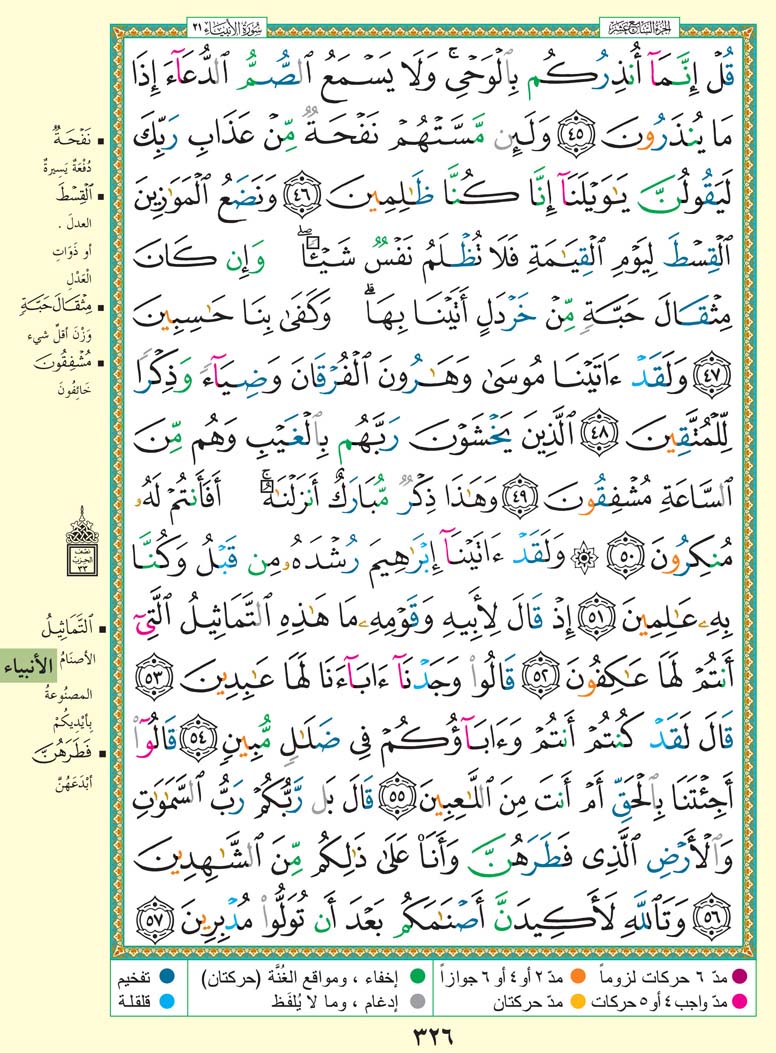 سُورَةُ الأَنبيَاء ٢١
الجزء السابع عشر
قُلْ إِنَّمَآ أُنذِرُكُم بِٱلْوَحْىِ ۚ وَلَا يَسْمَعُ ٱلصُّمُّ ٱلدُّعَآءَ إِذَا
مَا يُنذَرُونَ ٤٥ وَلَئِن مَّسَّتْهُمْ نَفْحَةٌ مِّنْ عَذَابِ رَبِّكَ
لَيَقُولُنَّ يَٰوَيْلَنَآ إِنَّا كُنَّا ظَٰلِمِينَ ٤٦ وَنَضَعُ ٱلْمَوَٰزِينَ
ٱلْقِسْطَ لِيَوْمِ ٱلْقِيَٰمَةِ فَلَا تُظْلَمُ نَفْسٌ شَيْـًٔا ۖ وَإِن كَانَ
مِثْقَالَ حَبَّةٍ مِّنْ خَرْدَلٍ أَتَيْنَا بِهَا ۗ وَكَفَىٰ بِنَا حَٰسِبِينَ
٤٧ وَلَقَدْ ءَاتَيْنَا مُوسَىٰ وَهَٰرُونَ ٱلْفُرْقَانَ وَضِيَآءً وَذِكْرًا
لِّلْمُتَّقِينَ ٤٨ ٱلَّذِينَ يَخْشَوْنَ رَبَّهُم بِٱلْغَيْبِ وَهُم مِّنَ
ٱلسَّاعَةِ مُشْفِقُونَ ٤٩ وَهَٰذَا ذِكْرٌ مُّبَارَكٌ أَنزَلْنَٰهُ ۚ أَفَأَنتُمْ لَهُۥ
مُنكِرُونَ ٥٠ ۞ وَلَقَدْ ءَاتَيْنَآ إِبْرَٰهِيمَ رُشْدَهُۥ مِن قَبْلُ وَكُنَّا
بِهِۦ عَٰلِمِينَ ٥١ إِذْ قَالَ لِأَبِيهِ وَقَوْمِهِۦ مَا هَٰذِهِ ٱلتَّمَاثِيلُ ٱلَّتِىٓ
أَنتُمْ لَهَا عَٰكِفُونَ ٥٢ قَالُوا۟ وَجَدْنَآ ءَابَآءَنَا لَهَا عَٰبِدِينَ ٥٣
قَالَ لَقَدْ كُنتُمْ أَنتُمْ وَءَابَآؤُكُمْ فِى ضَلَٰلٍ مُّبِينٍ ٥٤ قَالُوٓا۟
أَجِئْتَنَا بِٱلْحَقِّ أَمْ أَنتَ مِنَ ٱللَّٰعِبِينَ ٥٥ قَالَ بَل رَّبُّكُمْ رَبُّ ٱلسَّمَٰوَٰتِ
وَٱلْأَرْضِ ٱلَّذِى فَطَرَهُنَّ وَأَنَا۠ عَلَىٰ ذَٰلِكُم مِّنَ ٱلشَّٰهِدِينَ
٥٦ وَتَٱللَّهِ لَأَكِيدَنَّ أَصْنَٰمَكُم بَعْدَ أَن تُوَلُّوا۟ مُدْبِرِينَ ٥٧
نَفْحَةٌ
دُفْعَةٌ يَسِيرةٌ
ٱلْقِسْطَ
العدلَ .
أو ذَوَاتِ
الْعَدْلِ
مِثْقَالَ حَبَّةٍ
وَزْنَ أقلِّ شيء
مُشْفِقُونَ
خَائِفُونَ
نصف
الحزب
٣٣
ٱلتَّمَاثِيلُ
الأصنَامُ
المصنُوعةُ
بِأَيْدِيكُمْ
فَطَرَهُنَّ
أبْدَعَهُنَّ
الأنبياء
مدّ ٦ حركات لزوماً
مدّ ٢ أو ٤ أو ٦ جوازاً
إخفاء ، ومواقع الغُنَّة (حركتان)
تفخيم
مدّ واجب ٤ أو ٥ حركات
مدّ حركتان
إدغام ، وما لا يُلفَظ
قلقلة
٣٢٦